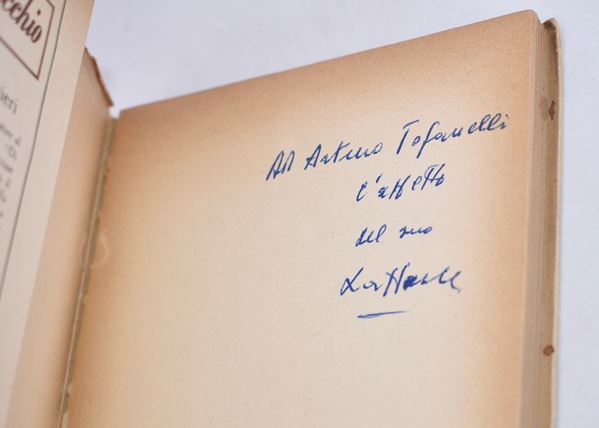 cchio
ieri
Ad Arturo Tofanelli
l'affetto
del suo